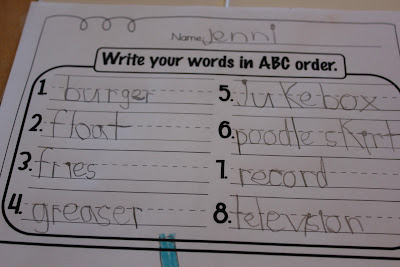 Name Jenni
Write your words in ABC order.
1. burger
2. float
3. fries
4. greaser
5. Jukebox
6. poodle skirt
7. record
8. television